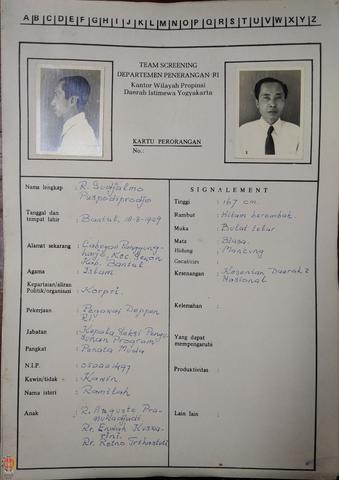 A B C D E F G H I J K L M N O P Q R S T U V W X Y Z
TEAM SCREENING
DEPARTEMEN PENERANGAN RI
Kantor Wilayah Propinsi
Daerah Istimewa Yogyakarta
KARTU PERORANGAN
No.:
Nama lengkap : R. Sudjalmo
Puspodiprodjo
Tanggal dan
tempat lahir : Bantul, 18-8-1929
Alamat sekarang : Cabeyan Panggung-
harjo, Kec. Sewon
Kab. Bantul
Agama : Islam
Kepartaian/aliran
Politik/organisasi : Korpri.
Pekerjaan : Pegawai Deppen
RI.
Jabatan : Kepala Seksi Penyu-
sunan Program
Pangkat : Penata Muda
N.I.P. :
Kawin/tidak : Kawin
Nama isteri : Ramilah
Anak : R. Auguste Pra-
Rr. Endah Kusu-
Rr. Retno Trihastuti
SIGNALEMENT
Tinggi : 167 cm.
Rambut : Hitam berombak.
Muka : Bulat telur
Mata : Biasa.
Hidung : Mancung
Cacat/ciri :
Kesenangan : Kesenian Daerah &
Nasional
Kelemahan :
Yang dapat
mempengaruhi :
Produktivitas :
Lain lain :